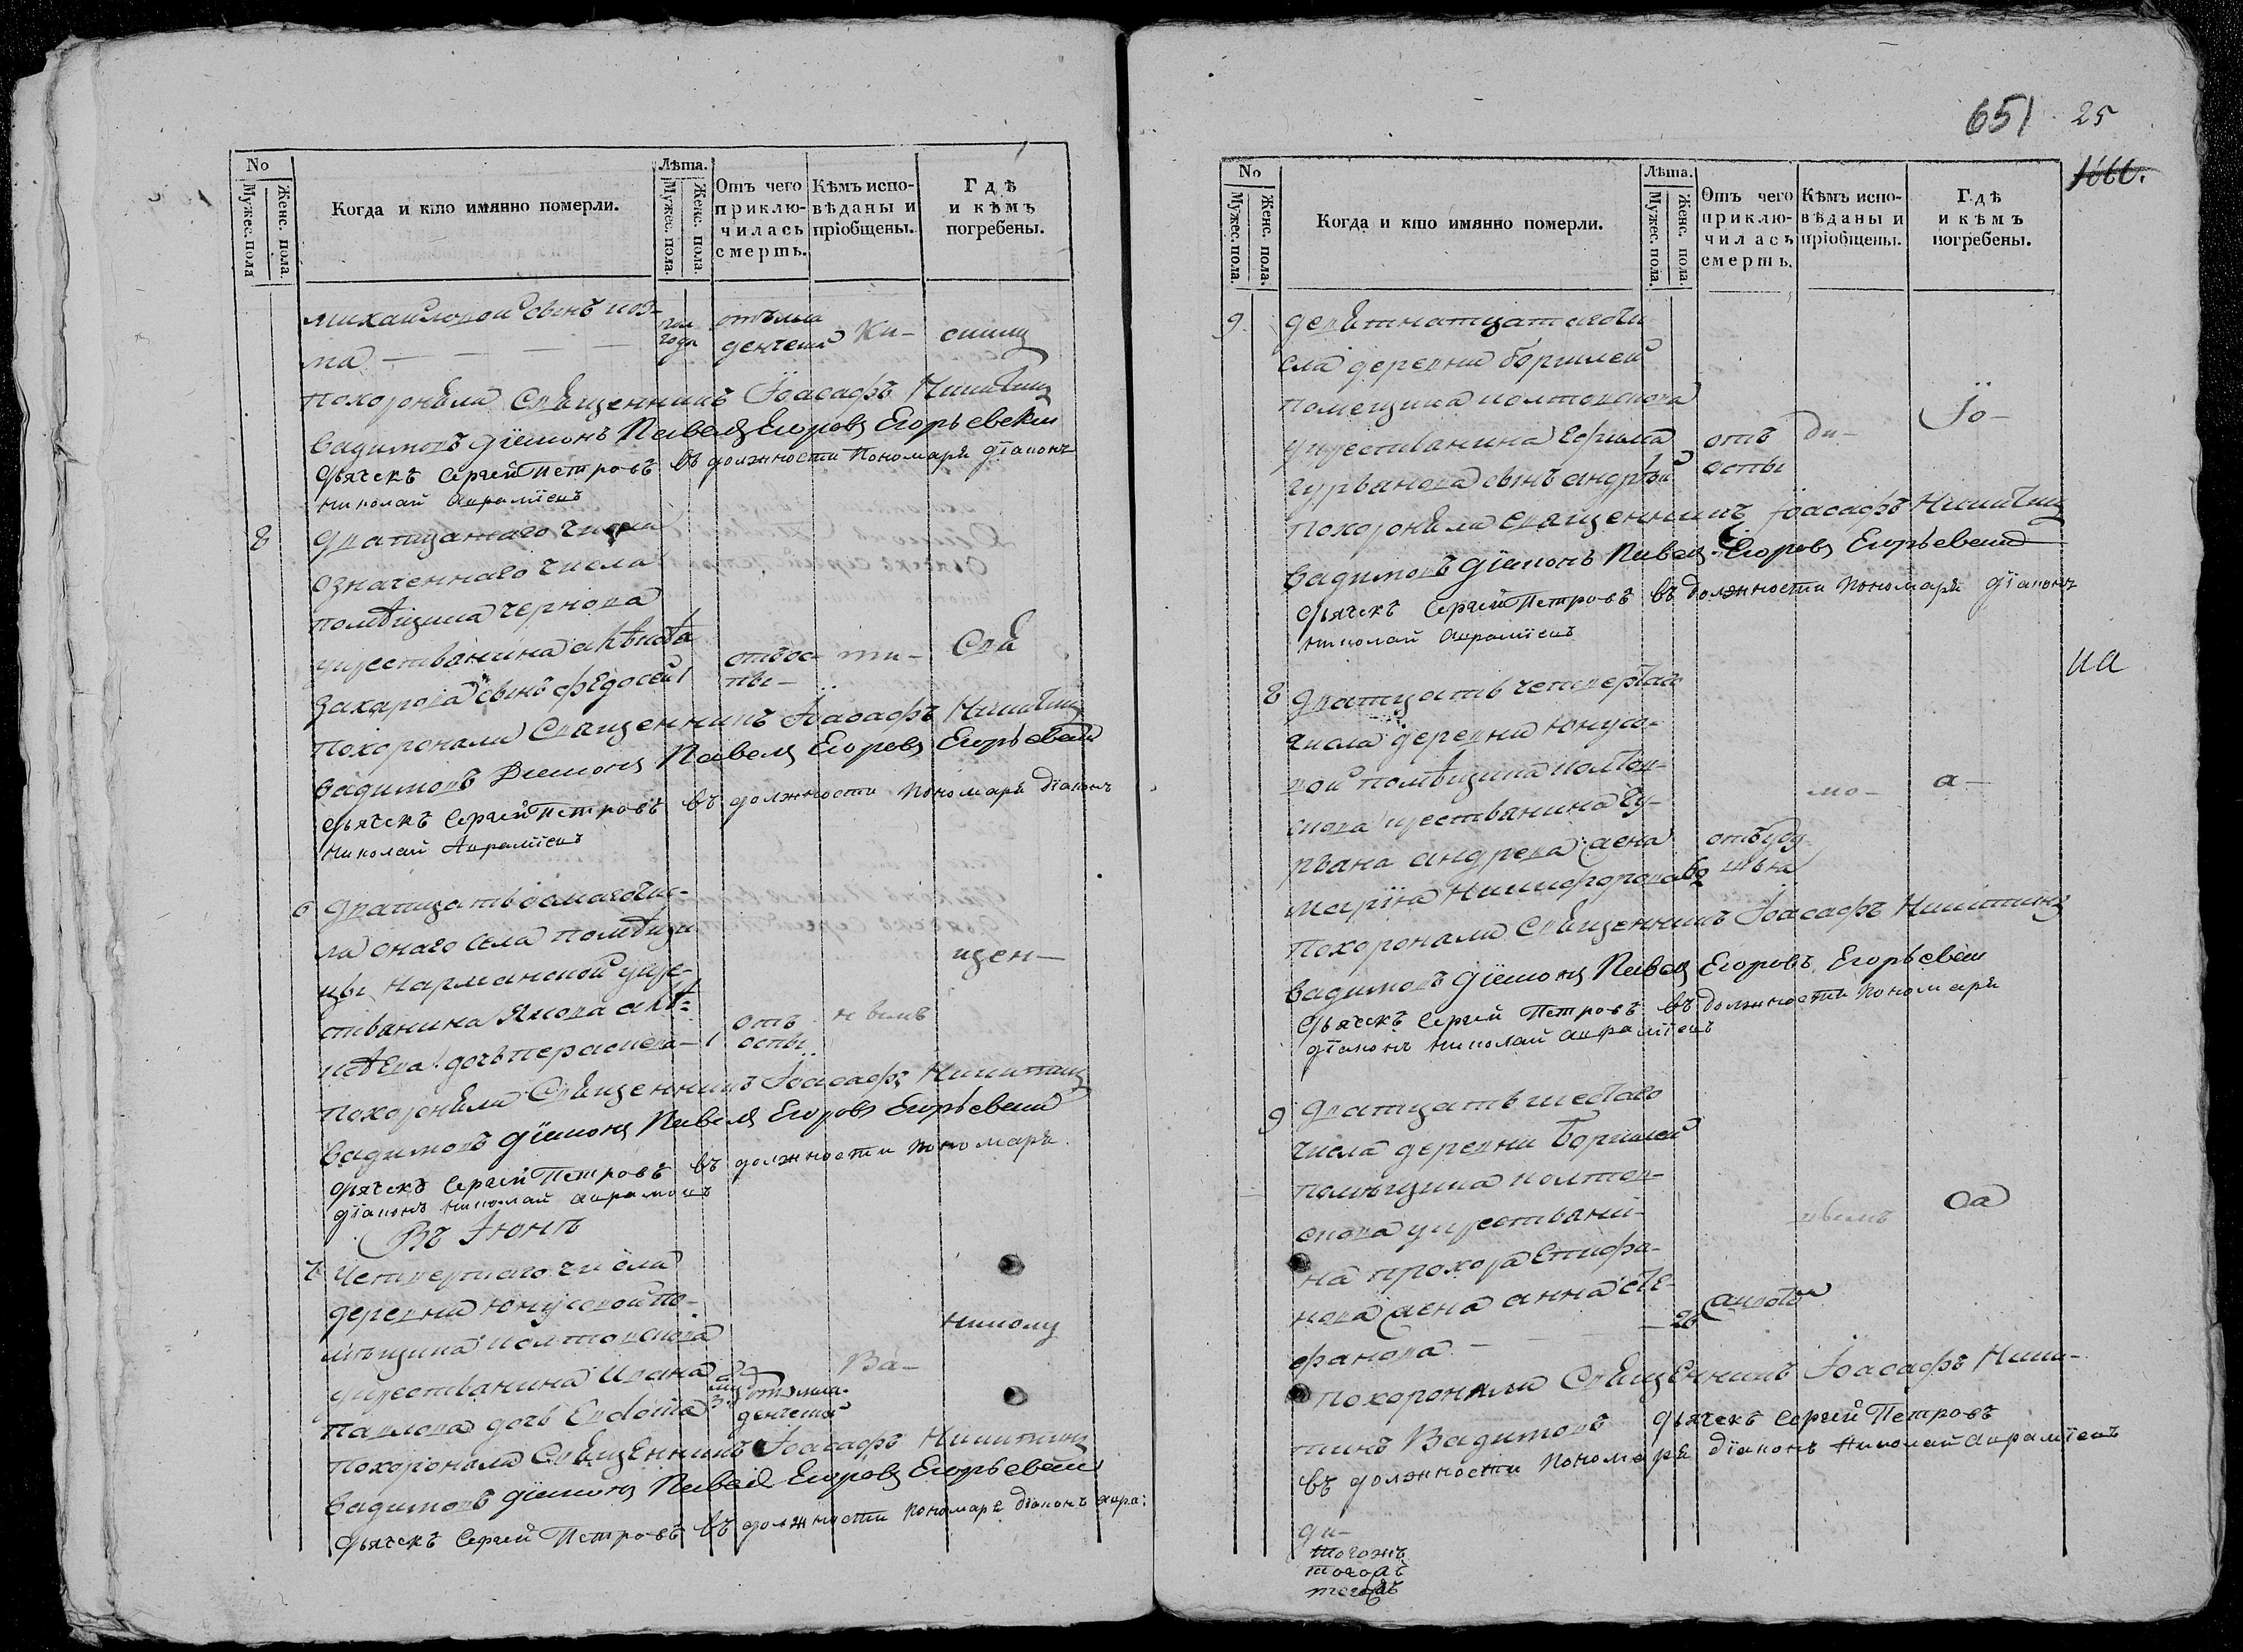 No
Мужес. пола
Женс. пола.
Когда и кто имянно померли.
Лѣта.
Мужес. пола.
Женс. пола.
Отъ чего приклю-
чилась смерть.
Кѣмъ испо-
вѣданы и
пріобщены.
Гдѣ
и кѣмъ
погребены.
михайловой сынъ
ма
года
отъ мла
денческ
Ки-
синиц
Похоронѣли Свѣщенникъ Іоасафъ Никитин
Вадимовъ діаконъ Павелъ Егоровъ Егорьевски
дьячекъ Сергей Петровъ въ должности Пономаря діаконъ
николай Аврамїевъ
8
дватцатаго числа
означеннаго числа
помѣщика чернова
крестьянина алѣксѣа
Захарова сынъ фѣдосей 1
отъ ос-
пы-
ти-
Свѣ
Похоронали Свѣщенникъ Іоасафъ Никитин
Вадимовъ Діаконъ Павелъ Егоровъ Егорьевски
дьячекъ Сергей Петровъ въ должности Пономаря діаконъ
Николай Аврамїевъ
6
дватцать осмаго чис-
ла онаго села помѣщи
цы нарманской крес-
тьянина Якова алѣ-
ксѣева дочь параскева 1
отъ
оспы
квимъ
щен-
Похоронѣли Свѣщенникъ Іоасафъ Никитин
Вадимовъ діаконъ Павелъ Егоровъ Егорьевски
дьячекъ Сергей Петровъ въ должности пономаря
діаконъ николай аврамовъ
Въ Іюнѣ
7
Четвертаго числа
деревни Юнусовой по-
мѣщика полтовскова
крестьянина Ивана
Павлова дочь Евдокїа
отъ мла-
денческа
Ва-
николу
Похоронѣли Свѣщѣнникъ Іоасафъ Никитин
Вадимовъ діаконъ Павелъ Егоровъ Егорьевски
дьячекъ Сергей Петровъ въ должности пономаря діаконъ авра:
651
25
No
Мужес. пола.
Женс. пола.
Когда и кто имянно померли.
Лѣта.
Мужес. пола.
Женс. пола.
Отъ чего приклю-
чилась смерть.
Кѣмъ испо-
вѣданы и
пріобщены.
Гдѣ
и кѣмъ
погребены.
9.
девѣтнатцатаго чи
сла деревни
помещика полтовскова
крестьянина Ефима
гурьянова сынъ андрѣй
отъ
оспы
ди-
Їо-
Похоронѣли священникъ Іоасафъ Никитин
Вадимовъ діаконъ Павелъ Егоровъ Егорьевски
дьячекъ Сергей Петровъ въ должности пономаря діаконъ
николай Аврамїевъ
на
8
Дватцать четвертаго
числа деревни Юнусо-
вой помѣщика полтов-
скова крестьянина Гу-
рьяна андрева жена
марїна Никифорова
отъ
мо-
а-
Похоронали Свѣщенникъ Іоасафъ Никитинъ
Вадимовъ діаконъ Павелъ Егоровъ Егорьевски
дьячекъ Сергей Петровъ въ должности пономаря
діаконъ Николай аврамїевъ
9
Дватцать шестаго
числа деревни
помѣщика полтов-
скова крестьяни-
на прохора Епифа-
нова жена анна сте-
фанова -
26
квимъ
Оа
Похоронѣли Свѣщѣнникъ Іоасафъ Ники-
тинъ Вадимовъ дьячекъ Сергей Петровъ
въ должности пономаря діаконъ Николай аврамїевъ
ди-
тогожъ
тогожъ
тогожъ